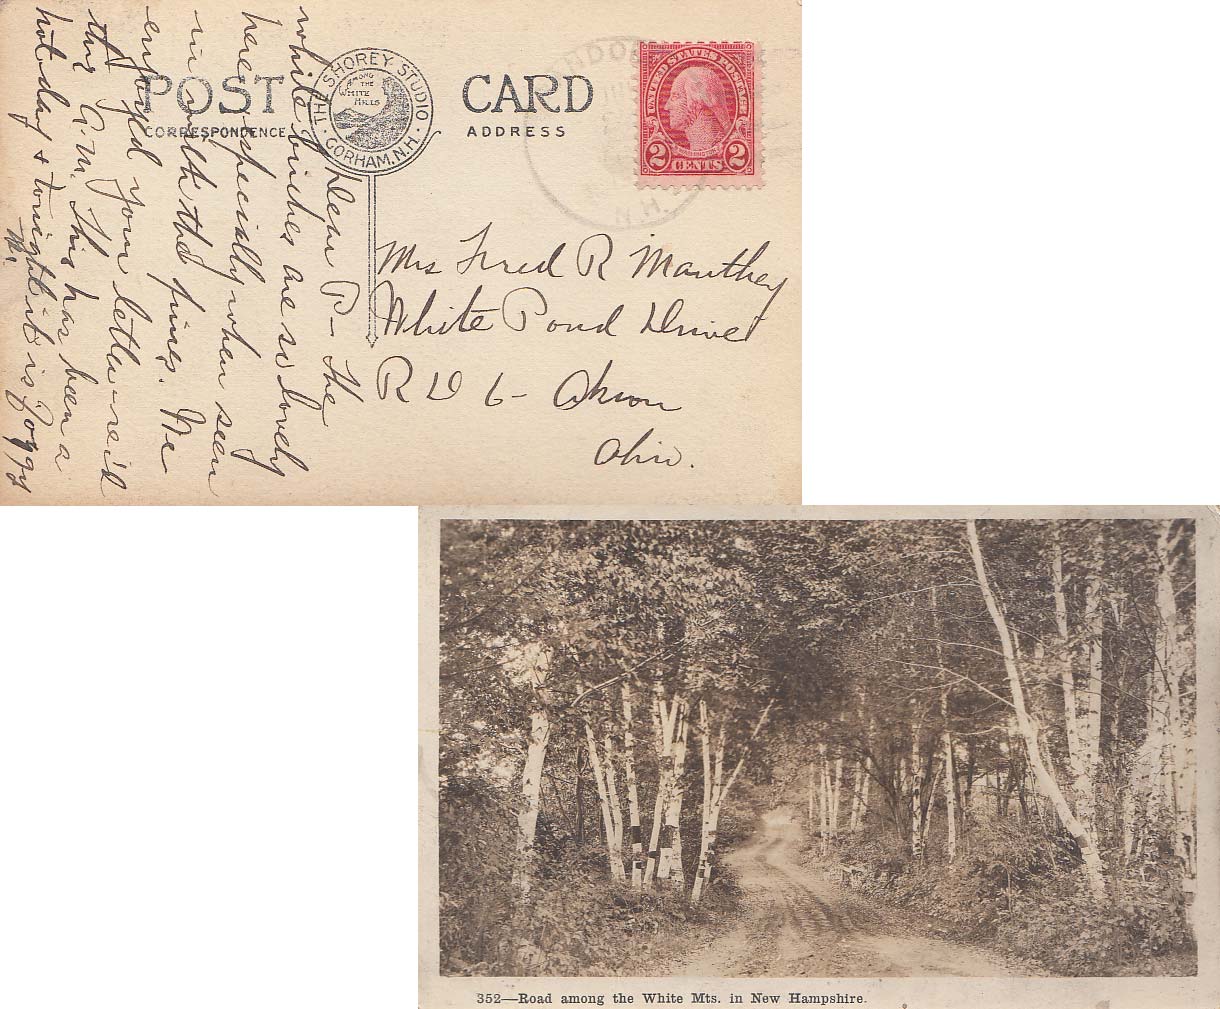 POST CARD
CORRESPONDENCE
ADDRESS
THE SHOREY STUDIO
AMONG
THE
WHITE
HILLS
GORHAM, N.H.
N.H.
UNITED STATES POSTAGE
WASHINGTON
2 CENTS 2
Dear P— The
white birches are so lovely
here, especially when seen
in with the pines. We
enjoyed your letter — re'd
this A.M. This has been a
hot day & tonight it is foggy
M.
Mrs Fred R Manthey
White Pond Drive
R D 6 - Akron
Ohio.
352—Road among the White Mts. in New Hampshire.